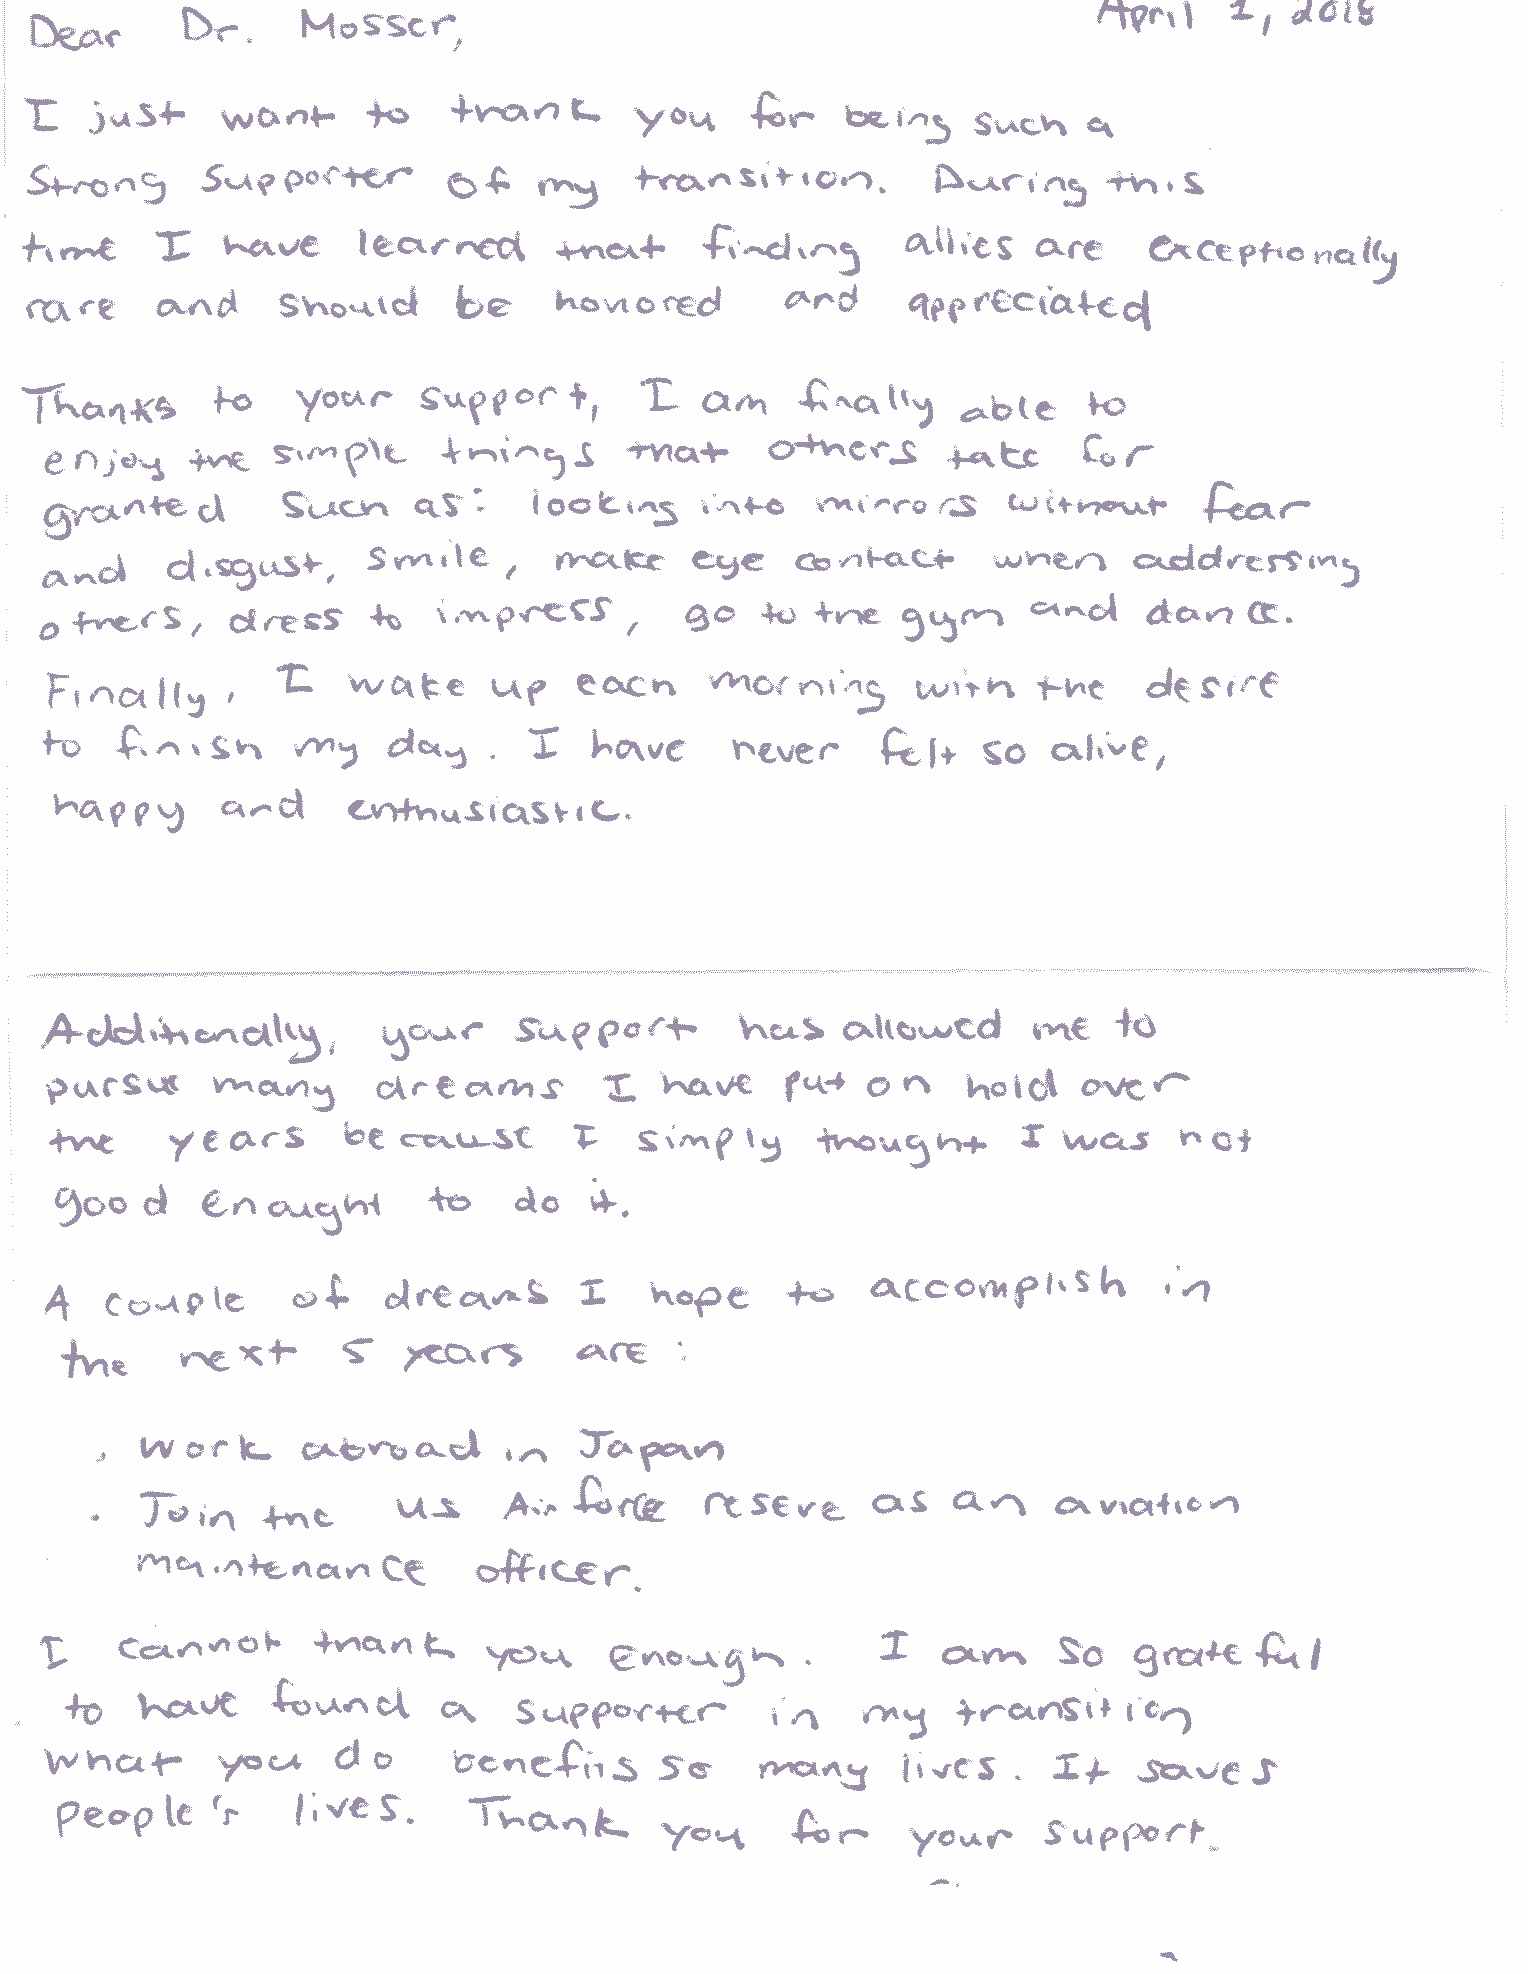 Dear Dr. Mosser,
April 1, 2018
I just want to thank you for being such a
Strong Supporter of my transition. During this
time I have learned that finding allies are exceptionally
rare and should be honored and appreciated
Thanks to your support, I am finally able to
enjoy the simple things that others take for
granted Such as: looking into mirrors without fear
and disgust, smile, make eye contact when addressing
others, dress to impress, go to the gym and dance.
Finally, I wake up each morning with the desire
to finish my day. I have never felt so alive,
happy and enthusiastic.
Additionally, your support has allowed me to
pursue many dreams I have put on hold over
the years because I simply thought I was not
good enought to do it.
A couple of dreams I hope to accomplish in
the next 5 years are:
· Work abroad in Japan
· Join the US Air force reserve as an aviation
maintenance officer.
I cannot thank you enough. I am so grateful
to have found a supporter in my transition
what you do benefits so many lives. It saves
people's lives. Thank you for your support.